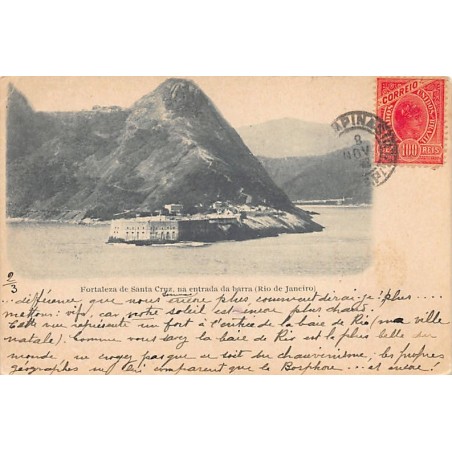 CORREIO
100 REIS
8
NOV
2/3
Fortaleza de Santa Cruz, na entrada da barra (Rio de Janeiro)
comme
...différence que nous encore plus, comment dirai-je? plus...
mettons: vifs, car notre soleil est encore plus chaud.
Cette vue représente un fort à l'entrée de la baie de Rio (ma ville
natale). Comme vous savez la baie de Rio est la plus belle du
monde ne croyez pas que ce soit du chauvinisme, les propres
géographes ne lui comparent que le Bosphore ... et encore!